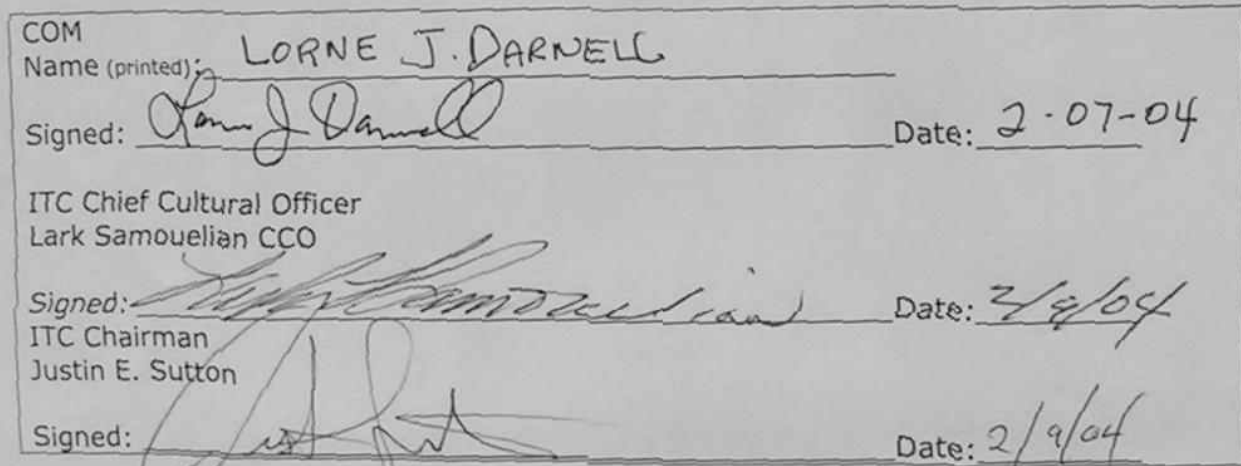 COM
Name (printed): LORNE J. DARNELL
Signed: Lorne J Darnell Date: 2-07-04
ITC Chief Cultural Officer
Lark Samouelian CCO
Signed: Lark Samouelian Date: 2/9/04
ITC Chairman
Justin E. Sutton
Signed: Date: 2/9/04